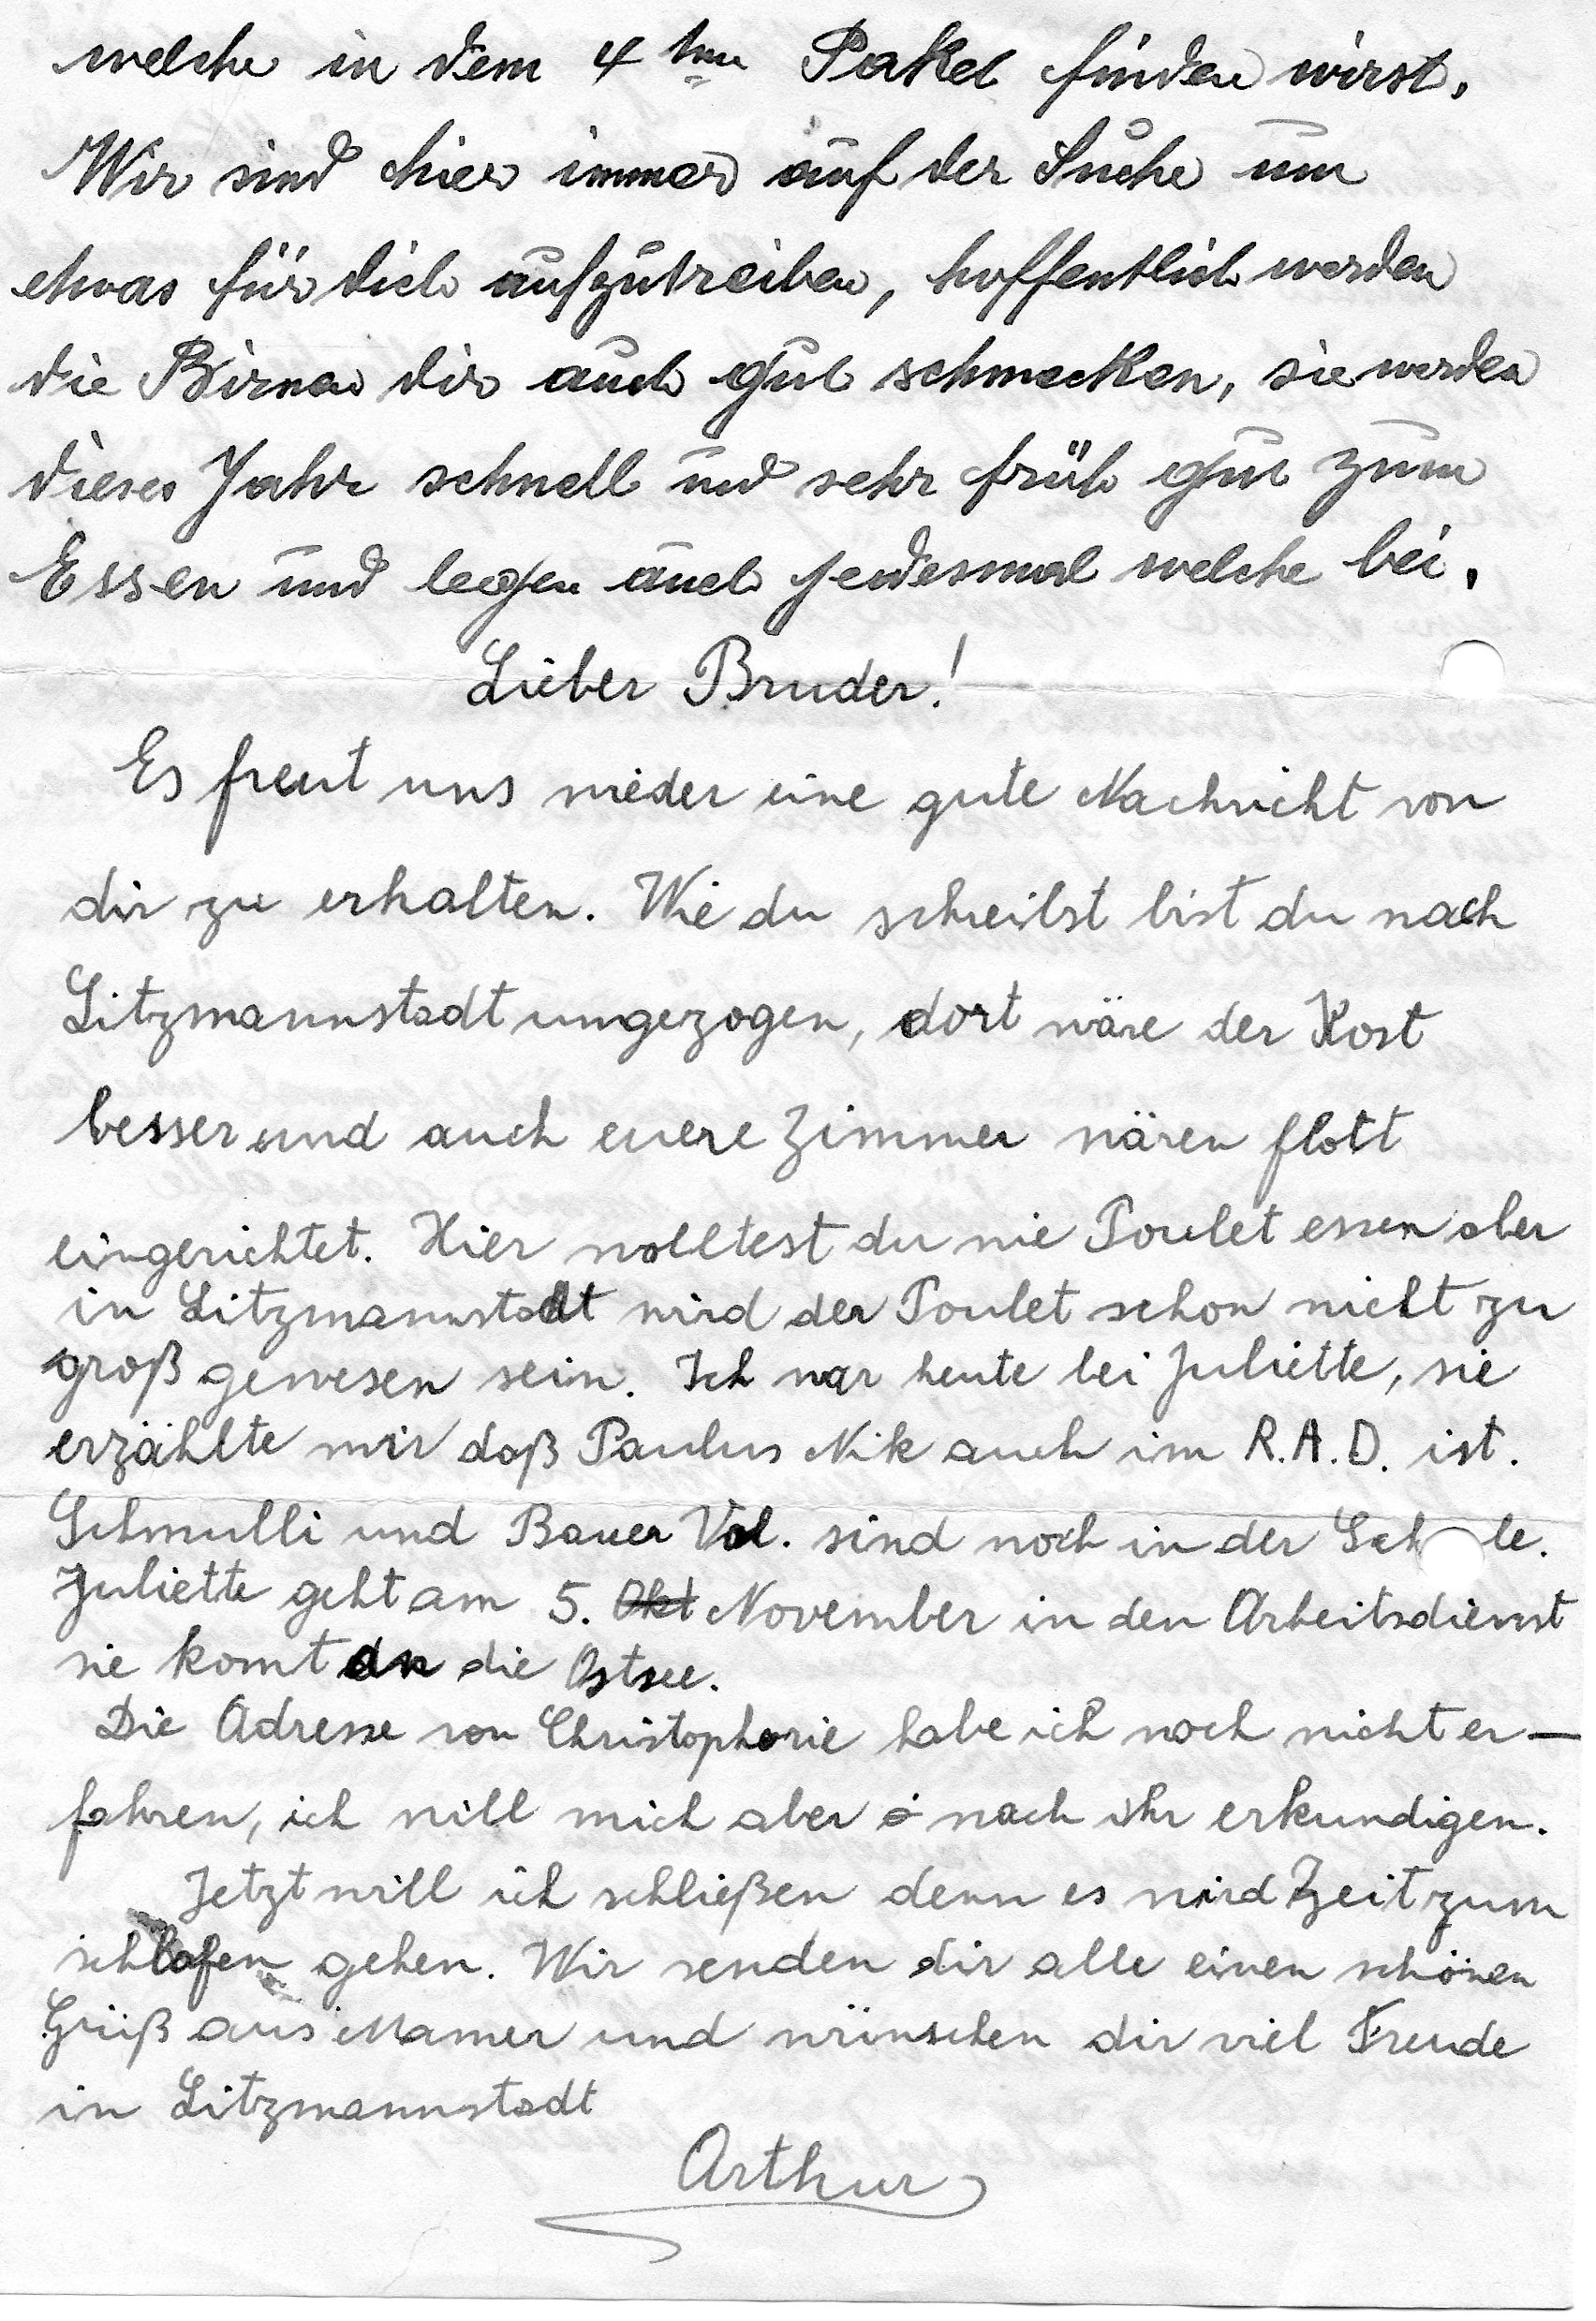 welche in dem 4ten Paket finden wirst.
Wir sind hier immer auf der Suche um
etwas für dich aufzutreiben, hoffentlich werden
die Birnen dir auch gut schmecken, sie werden
dieses Jahr schnell und sehr früh gut zum
Essen und legen auch jedesmal welche bei.
Lieber Bruder!
Es freut uns wieder eine gute Nachricht von
dir zu erhalten. Wie du schreibst bist du nach
Litzmannstadt umgezogen, dort wäre der Kost
besser und auch euere Zimmer wären flott
eingerichtet. Hier wolltest du nie Poulet essen aber
in Litzmannstadt wird der Poulet schon nicht zu
groß gewesen sein. Ich war heute bei Juliette, sie
erzählte mir daß Paulus Nik auch im R.A.D. ist.
Schmulli und Bauer Val. sind noch in der Sch le.
Juliette geht am 5. Okt November in den Arbeitsdienst
sie komt an die Ostsee.
Die Adresse von Christophorie habe ich noch nicht er—
fahren, ich will mich aber nach ihr erkundigen.
Jetzt will ich schließen denn es wird Zeit zum
schlafen gehen. Wir senden dir alle einen schönen
Grüß aus Mamer und wünschen dir viel Freude
in Litzmannstadt
Arthur